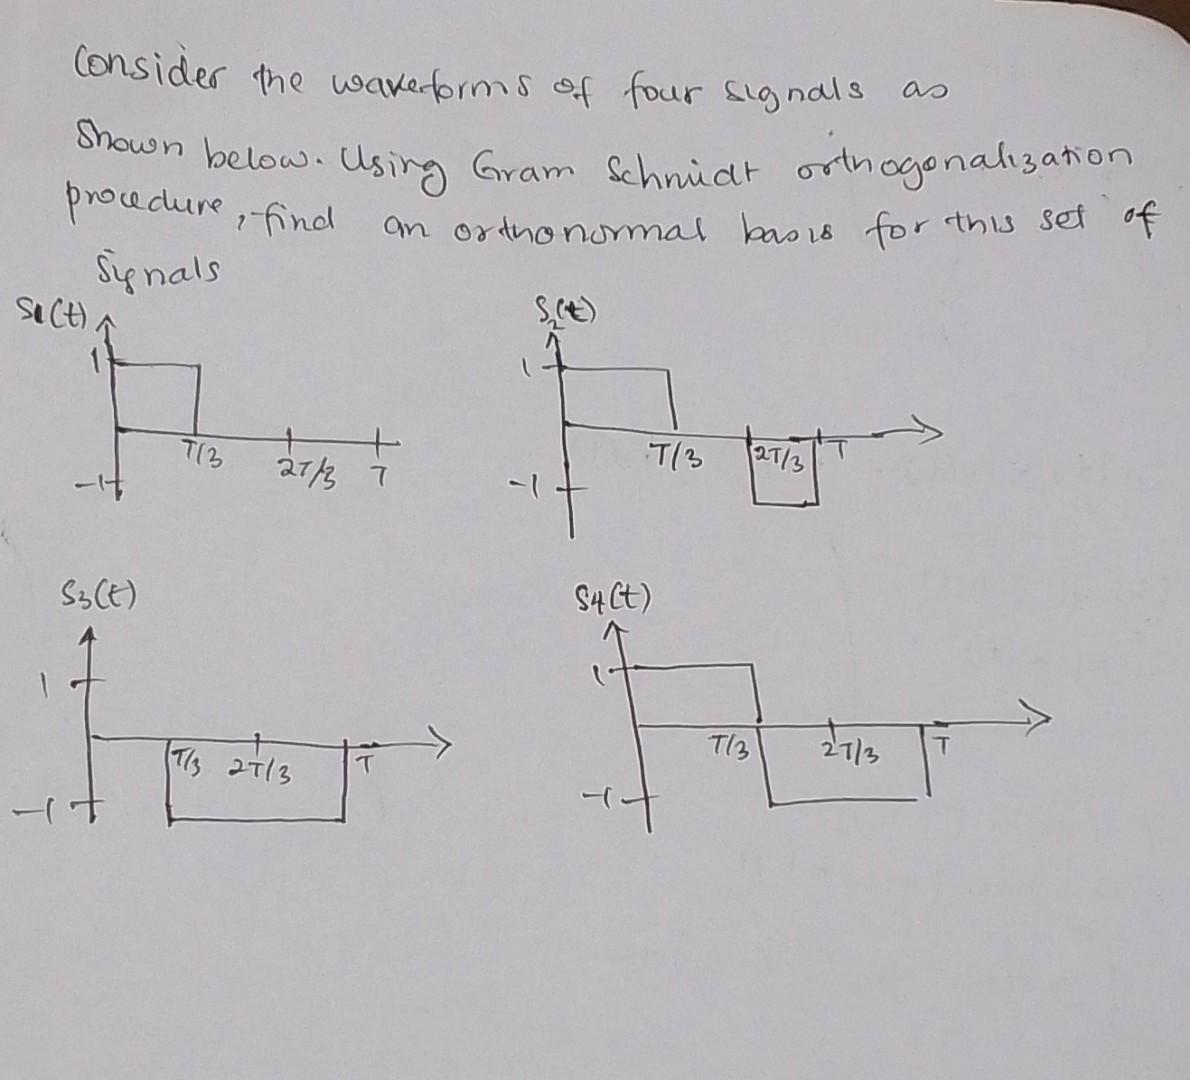 Consider the waveforms of four signals as
Shown below. Using Gram Schmidt orthogonalization
procedure, find an orthonormal basis for this set of
Signals
S1(t)
1
T/3
2T/3
T
-1
S2(t)
1
T/3
2T/3
T
-1
S3(t)
1
T/3
2T/3
T
-1
S4(t)
1
T/3
2T/3
T
-1